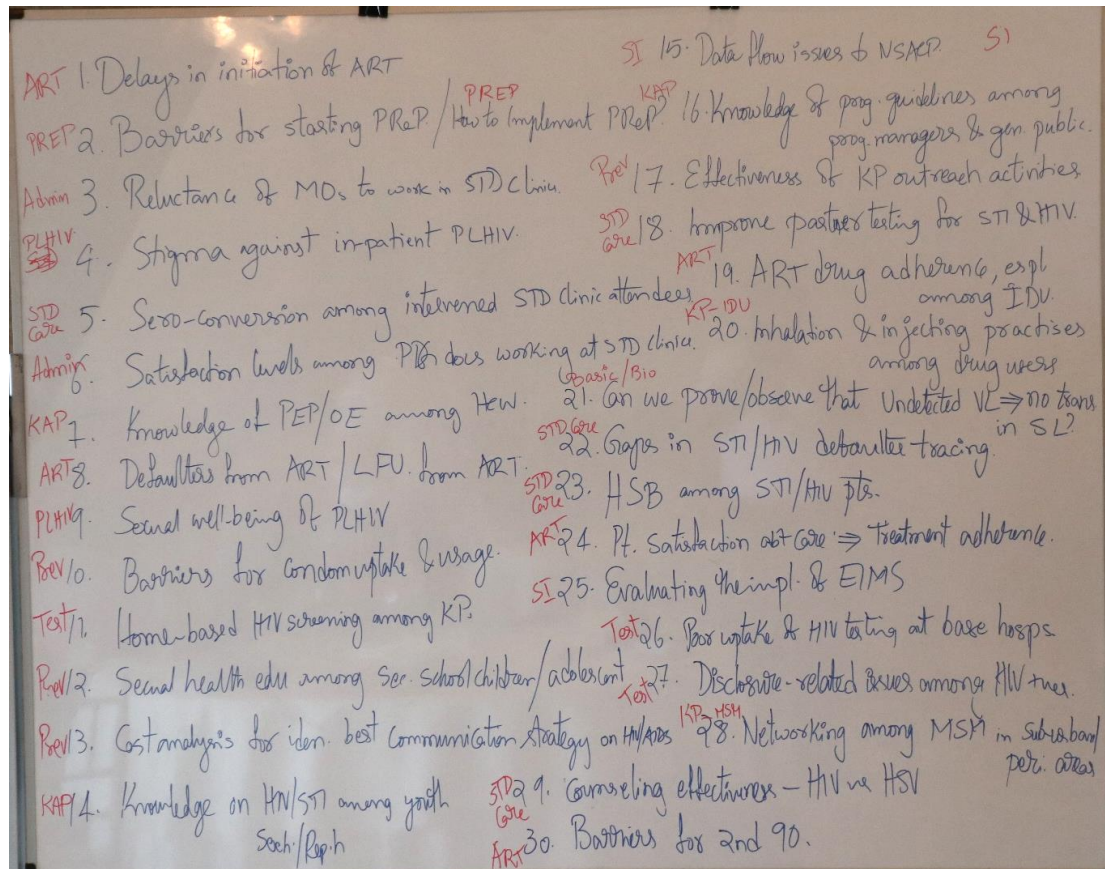 ART 1. Delays in initiation of ART
PREP 2. Barriers for starting PReP. / How to implement PReP? PREP
Admin 3. Reluctance of MOs to work in STD Clinic.
PLHIV 4. Stigma against in-patient PLHIV.
STD Care 5. Sero-conversion among intervened STD Clinic attendees
Admin 6. Satisfaction levels among docs working at STD clinic.
KAP 7. Knowledge of PEP/OE among HCW.
ART 8. Defaulters from ART / LFU. from ART.
PLHIV 9. Sexual well-being of PLHIV
Prev 10. Barriers for condom uptake & usage.
Test 11. Home-based HIV screening among KP.
Prev 12. Sexual health edu among Sec. School children / adolescent
Prev 13. Cost analysis for iden. best Communication Strategy on HIV/AIDS
KAP 14. Knowledge on HIV/STI among youth
Sexh./Rep.h
SI 15. Data flow issues to NSACP. SI
KAP 16. Knowledge of prog. guidelines among
prog. managers & gen. public.
Prev 17. Effectiveness of KP outreach activities
STD Care 18. Improve partner testing for STI & HIV.
ART 19. ART drug adherence, espl
among IDU.
KP-IDU 20. Inhalation & injecting practises
among drug users
Basic/Bio
21. Can we prove/observe that Undetected VL ⇒ no trans
in SL?
STD Care 22. Gaps in STI/HIV defaulter tracing.
STD Care 23. HSB among STI/HIV pts.
ART 24. Pt. Satisfaction abt Care ⇒ Treatment adherence.
SI 25. Evaluating the impl. of EIMS
Test 26. Poor uptake of HIV testing at base hosps.
Test 27. Disclosure-related issues among HIV +ves.
KP-MSM 28. Networking among MSM in Suburban/
peri. areas
STD Care 29. Counseling effectiveness - HIV vs HSV
ART 30. Barriers for 2nd 90.